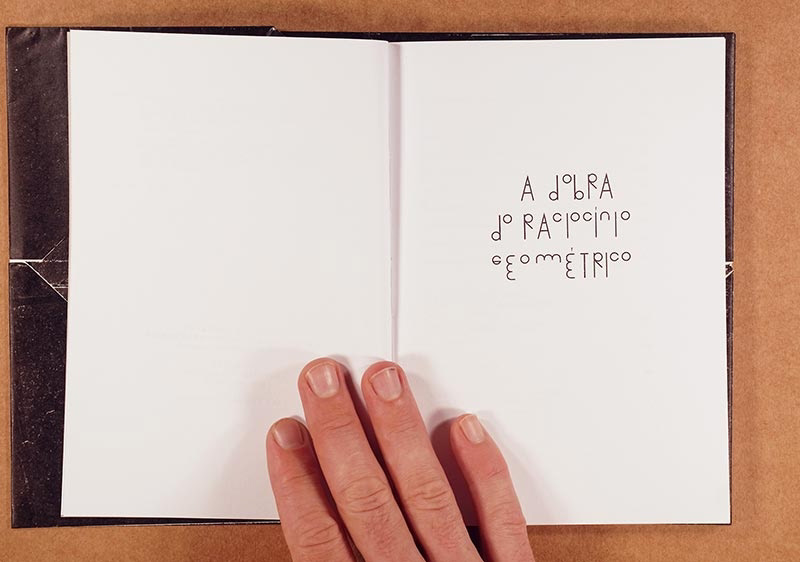 A dobRA
do RAciocínio
geométrico